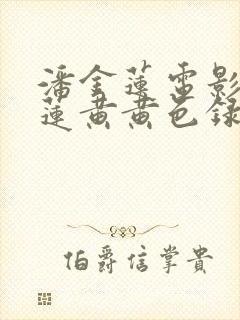 潘金莲电影
莲黄黄色录
伯爵信掌贵